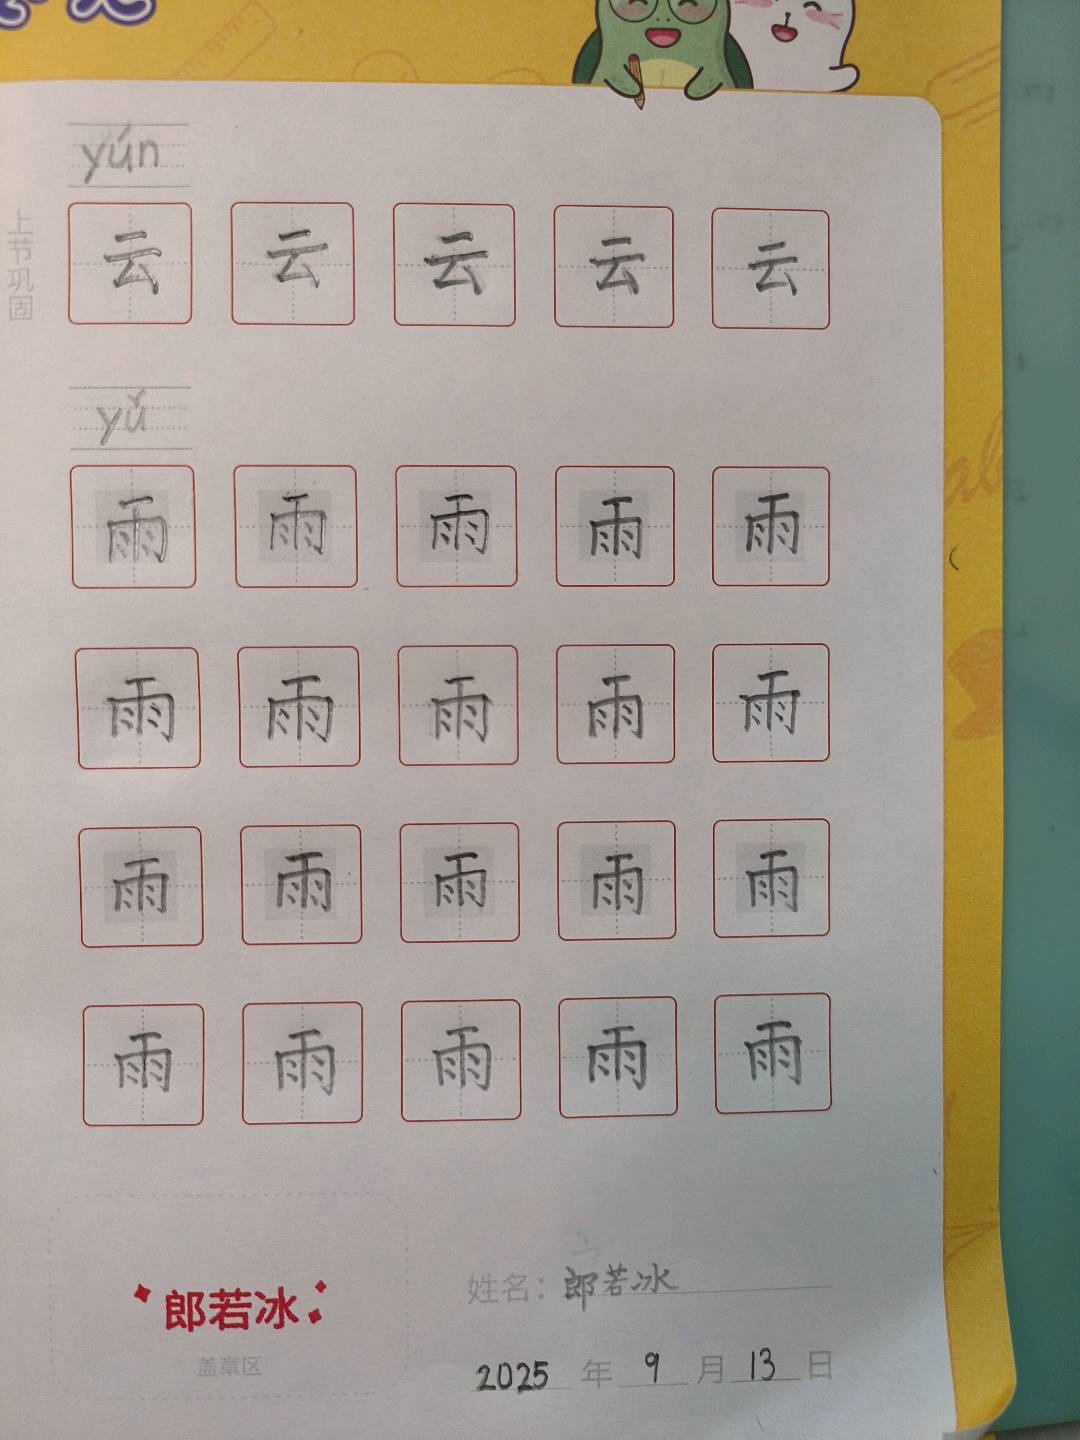 yún
上节巩固
云 云 云 云 云
yǔ
雨 雨 雨 雨 雨
雨 雨 雨 雨 雨
雨 雨 雨 雨 雨
雨 雨 雨 雨 雨
郎若冰
盖章区
姓名：郎若冰
2025 年 9 月 13 日